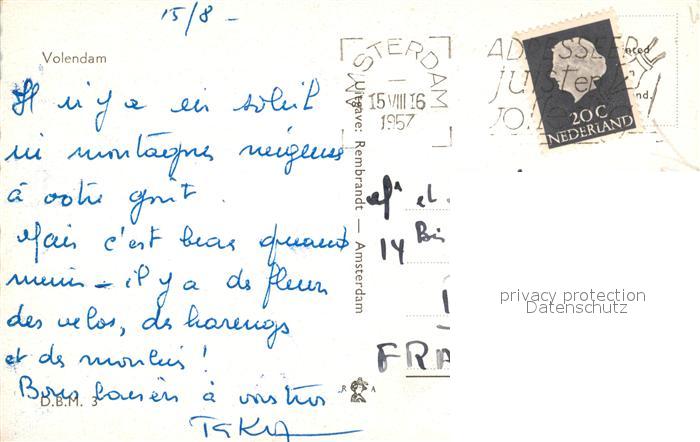 15/8 -
Volendam
Il n'y a ni soleil
ni montagnes neigeuses
à votre goût.
Mais c'est beau quand
même - il y a des fleurs
des velos, des harengs
et des moulins!
Bons baisers à
D.B.M. 3
Uitgave: Rembrandt — Amsterdam
R A
AMSTERDAM
15 VIII 16
1957
ADRESSEER
JUIST
20 C
NEDERLAND
et
14 Bis
FRA
privacy protection
Datenschutz